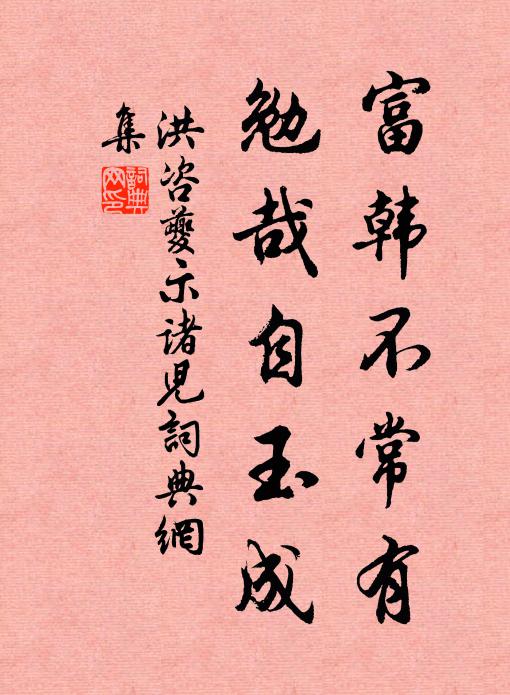 富韩不常有
勉哉自玉成
洪咨夔示诸儿詞典網
集
詞典
网印